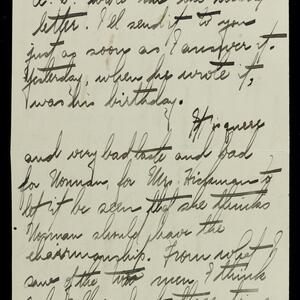 letter. I'll send it to you
just as soon as I answer it.
Yesterday, when he wrote it,
was his birthday.
It is queer
and very bad taste and bad
for Norman, for Mrs. Hickman to
let it be seen that she thinks
Norman should have the
chairmanship. From what I
saw of the two men, I think